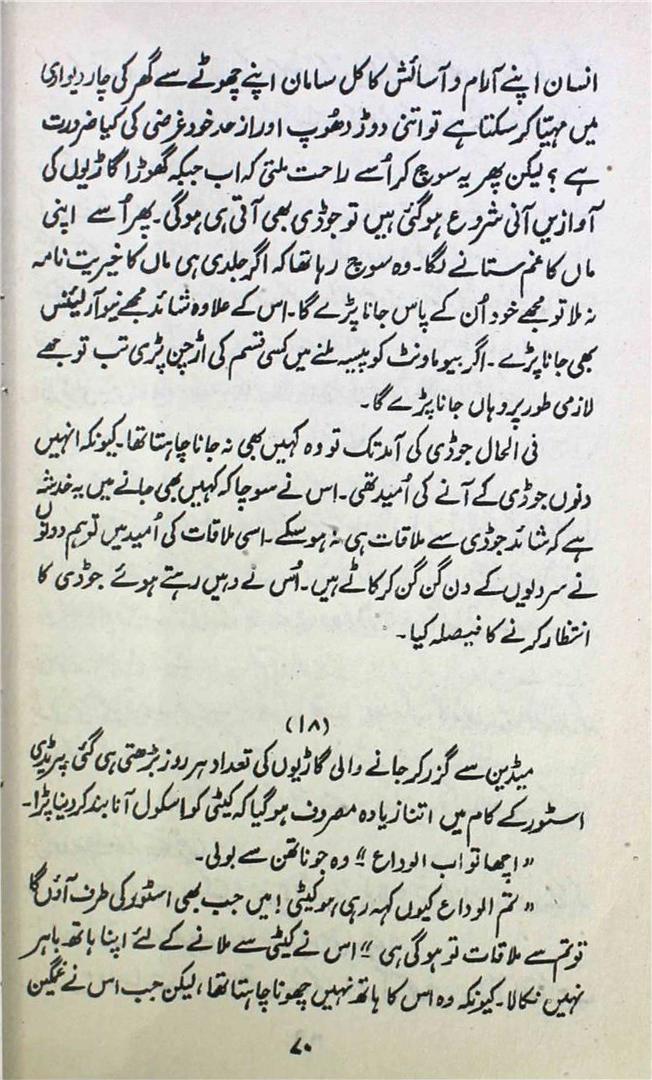 انسان اپنے آرام و آسائش کا کل سامان اپنے چھوٹے سے گھر کی چار دیواری
میں مہیّا کر سکتا ہے تو اتنی دوڑ دھُوپ اور از حد خود غرضی کی کیا ضرورت
ہے ؟ لیکن پھر یہ سوچ کر اُسے راحت ملتی کہ اب جبکہ گھوڑا گاڑیوں کی
آوازیں آنی شروع ہو گئی ہیں تو جوڈی بھی آتی ہی ہوگی۔ پھر اُسے اپنی
ماں کا غم ستانے لگا۔ وہ سوچ رہا تھا کہ اگر جلدی ہی ماں کا خیریت نامہ
نہ ملا تو مجھے خود اُن کے پاس جانا پڑے گا۔ اس کے علاوہ شائد مجھے نیو آرلینس
بھی جانا پڑے ۔ اگر بیوماونٹ کو پیسہ ملنے میں کسی قسم کی اڑچن پڑی تب تو مجھے
لازمی طور پر وہاں جانا پڑے گا۔
فی الحال جوڈی کی آمد تک تو وہ کہیں بھی نہ جانا چاہتا تھا۔ کیونکہ انہیں
دنوں جوڈی کے آنے کی اُمید تھی۔ اس نے سوچا کہ کہیں بھی جانے میں یہ خدشہ
ہے کہ شائد جوڈی سے ملاقات ہی نہ ہو سکے ۔ اسی ملاقات کی اُمید میں تو ہم دونوں
نے سردیوں کے دن گن گن کر کاٹے ہیں۔ اُس نے وہیں رہتے ہوئے جوڈی کا
انتظار کرنے کا فیصلہ کیا۔
(۱۸)
میڈین سے گزر کر جانے والی گاڑیوں کی تعداد ہر روز بڑھتی ہی گئی۔ پریڈی
اسٹور کے کام میں اتنا زیادہ مصروف ہو گیا کہ کیٹی کو اسکول آنا بند کر دینا پڑا۔
"اچھا تو اب الوداع" وہ جوناتھن سے بولی۔
"تم الوداع کیوں کہہ رہی ہو کیٹی! میں جب بھی اسٹور کی طرف آؤں گا
تو تم سے ملاقات تو ہو گی ہی" اس نے کیٹی سے ملانے کے لئے اپنا ہاتھ باہر
نہیں نکالا۔ کیونکہ وہ اس کا ہاتھ نہیں چھونا چاہتا تھا، لیکن جب اس نے غمگین
۷۰